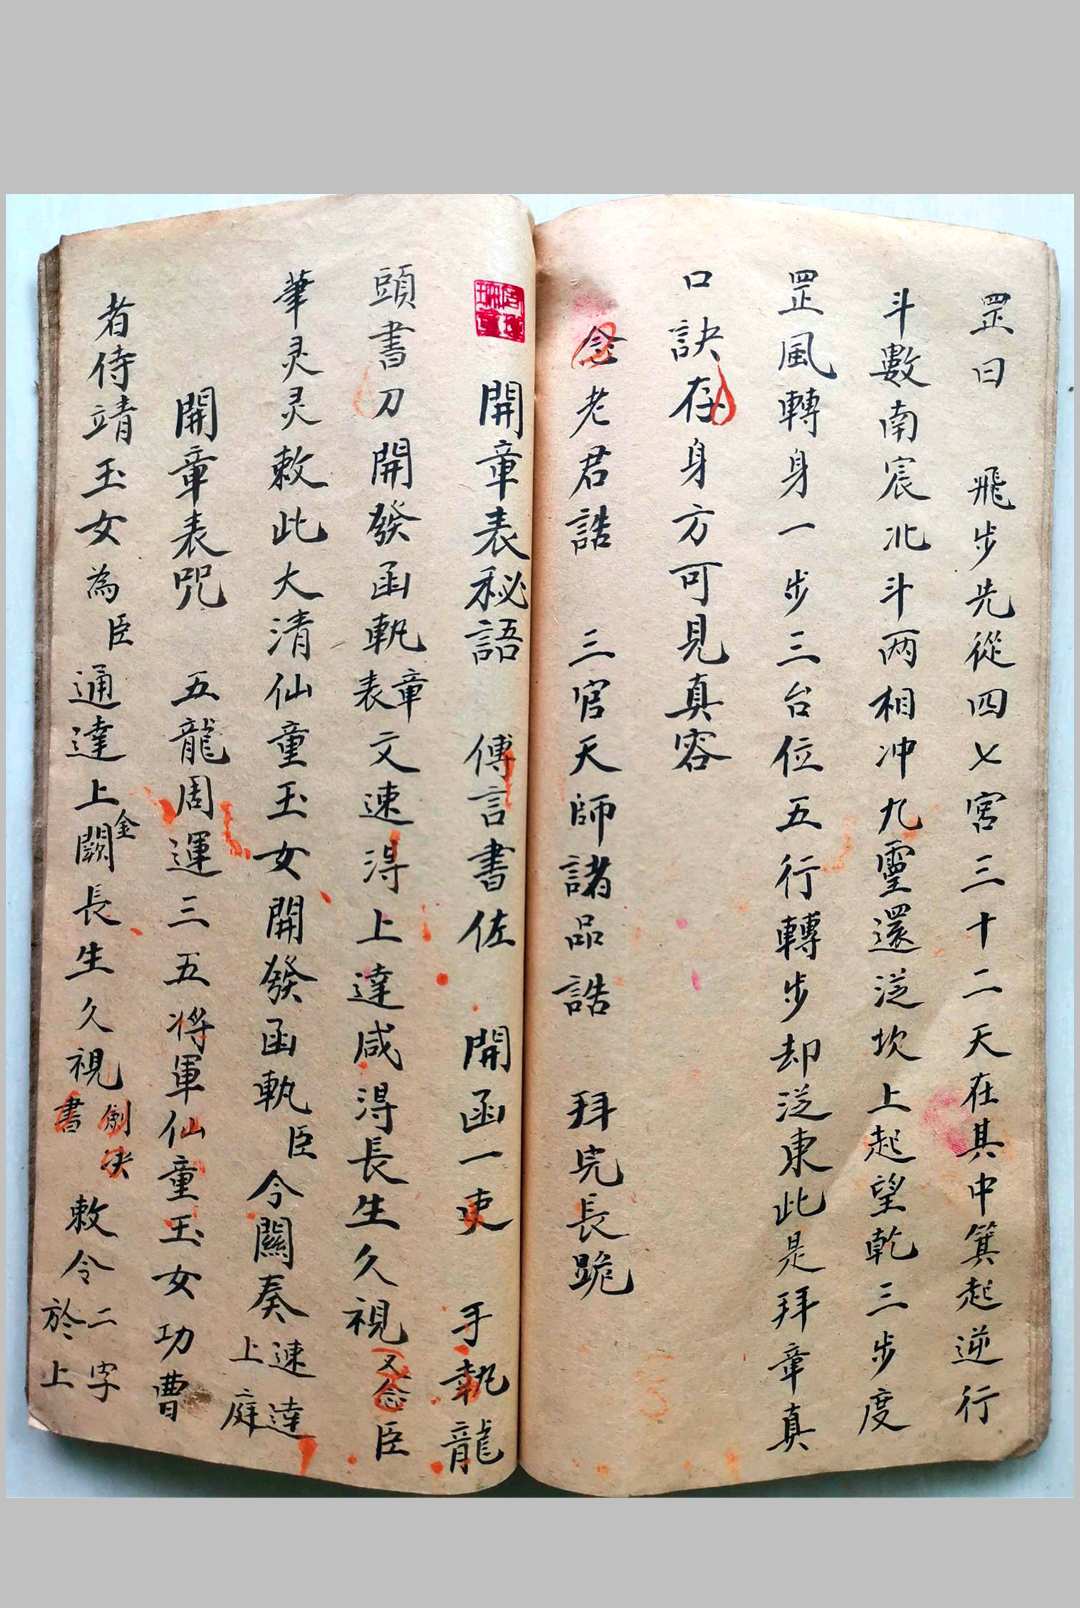 罡曰 飛步先從四七宮三十二天在其中箕起逆行
斗數南宸北斗两相冲九靈還泛坎上起望乾三步度
罡風轉身一步三台位五行轉步却泛東此是拜章真
口訣存身方可見真容
念老君誥 三官天師諸品誥 拜完長跪
開章表秘語 傅言書佐 開函一吏 手執龍
頭書刀開發函執章表文速淂上達咸淂長生久視又念臣
筆灵灵敕此大清仙童玉女開發函執臣令關奏速達上庭
開章表咒 五龍周運三五将軍仙童玉女功曹
者侍靖玉女為臣通達上金闕長生久視劍决書敕令二字於上